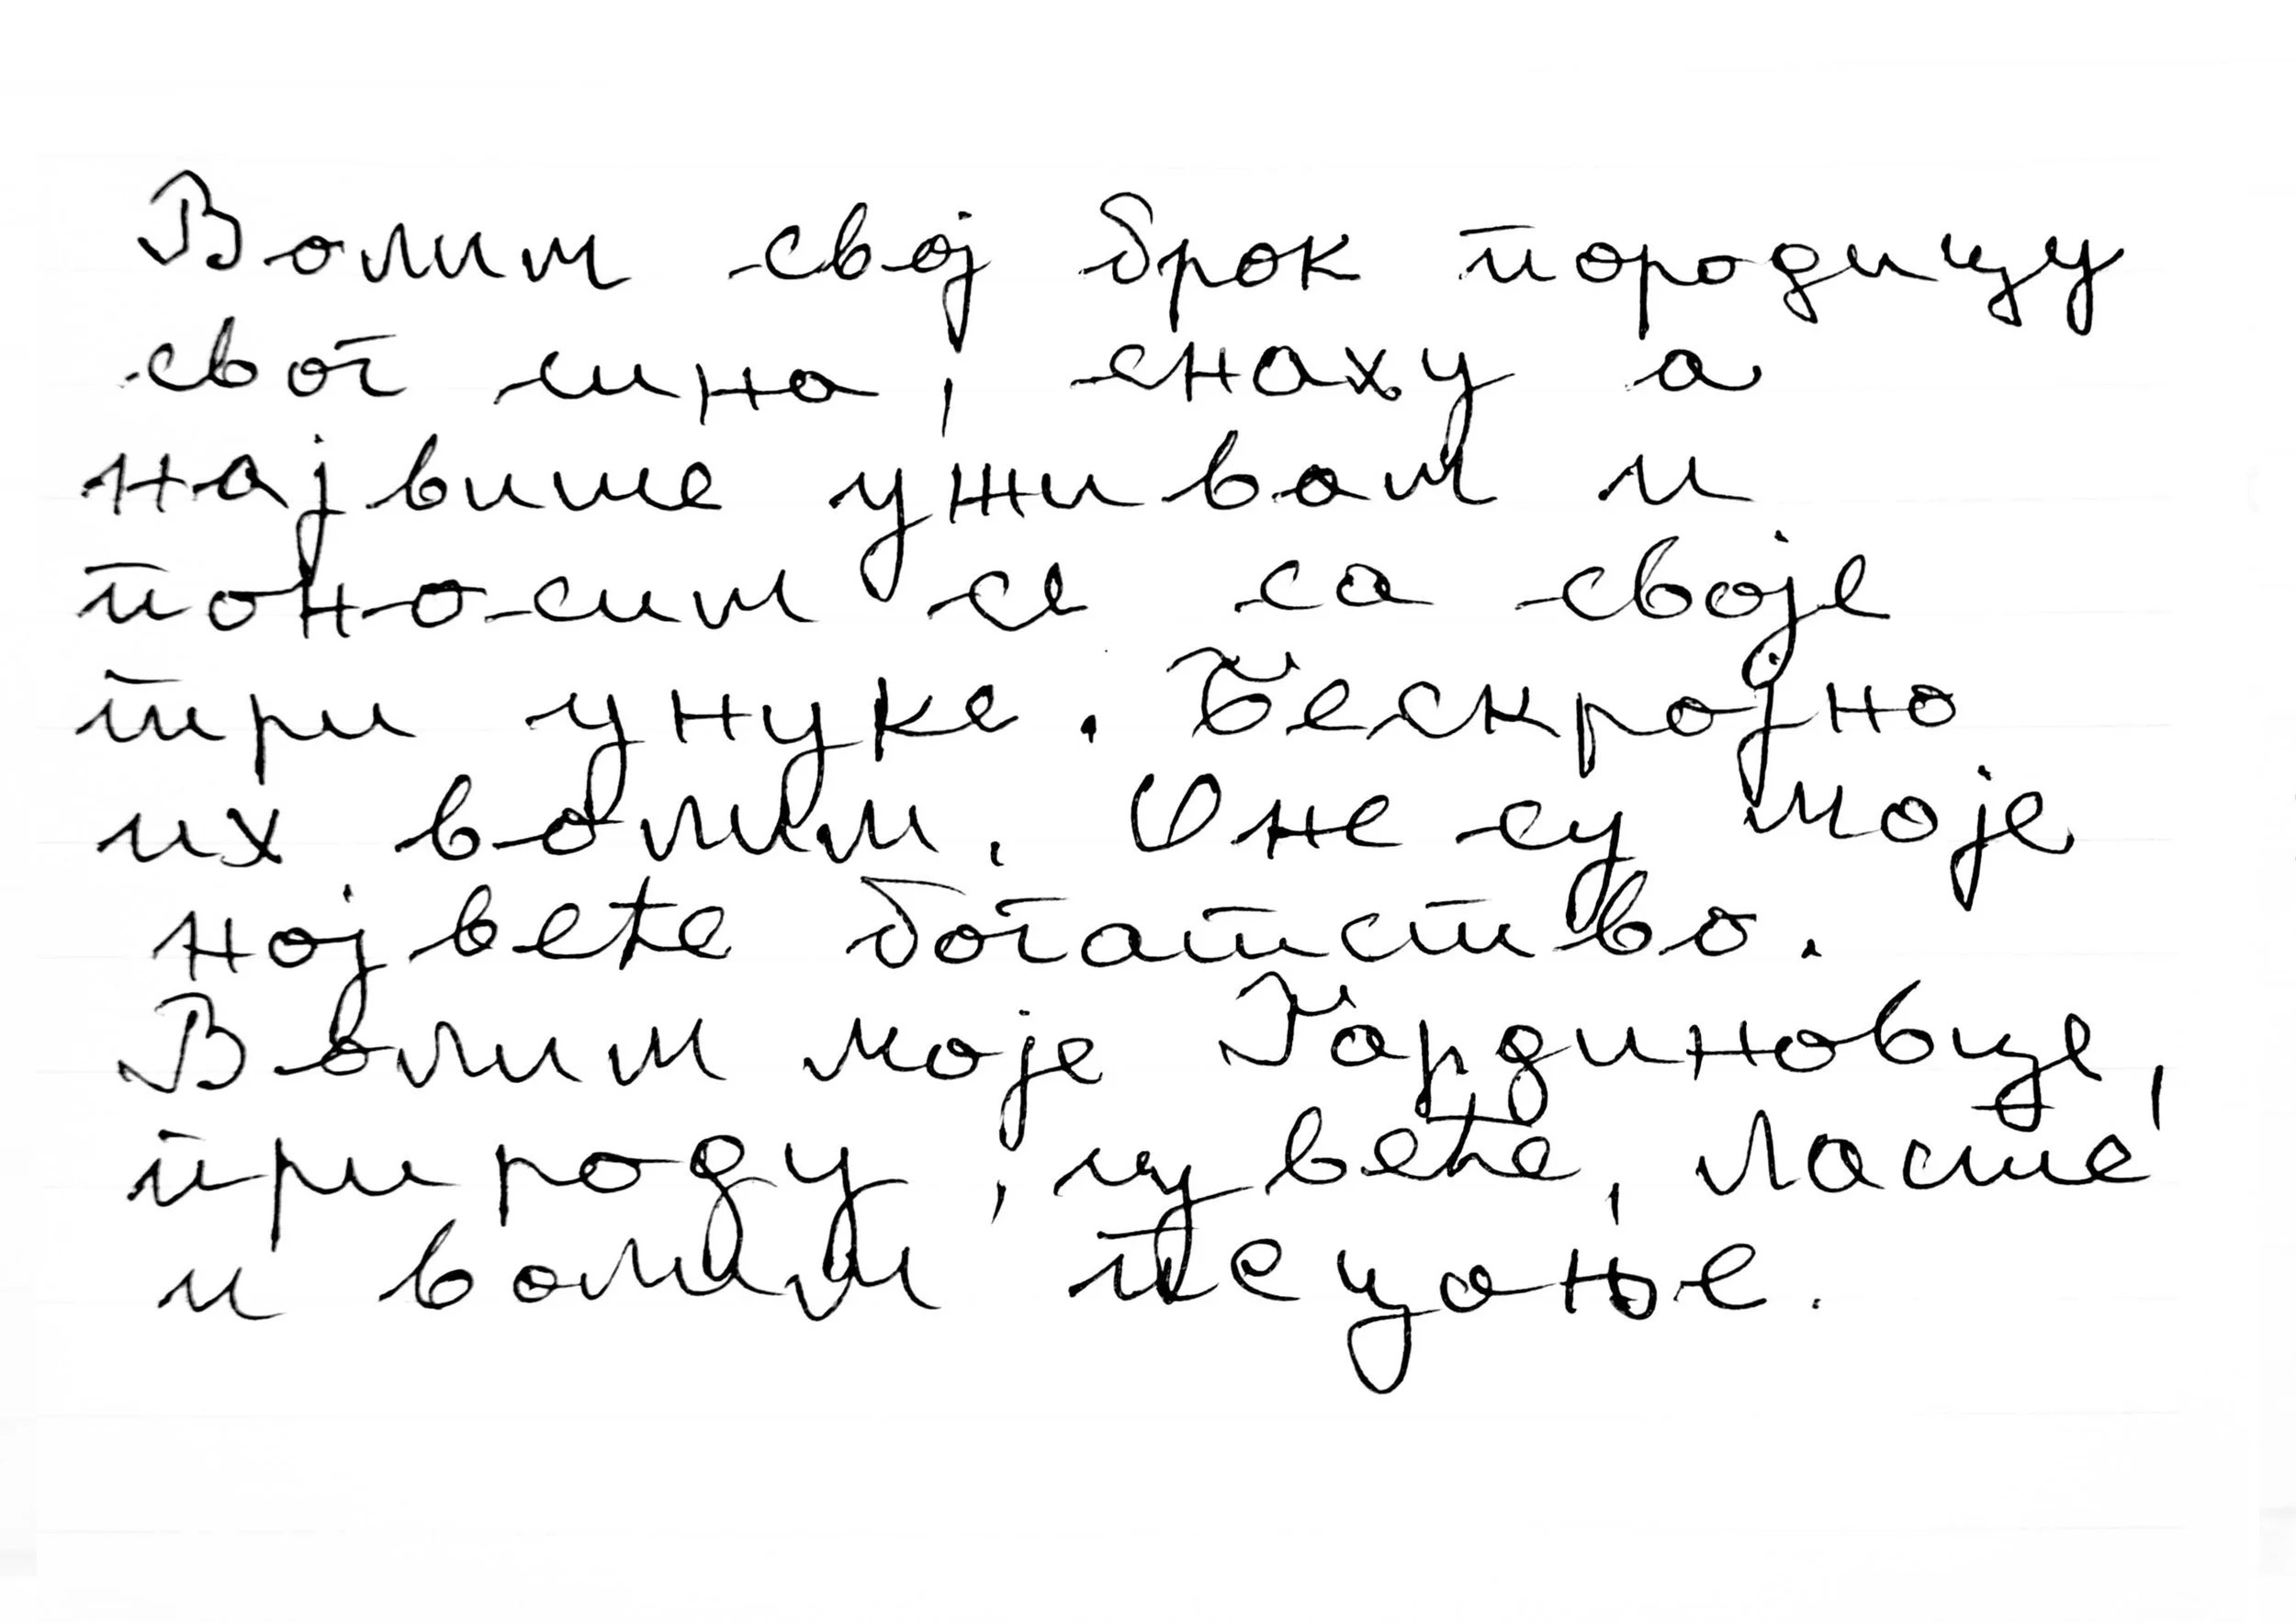 Волим свој брок породицу
свог сина, снаху а
највише уживам и
поносим се са своје
три унуке. Бескрајно
их волим. Оне су моје
највеће богатство.
Волим моје Гардиновце,
природу, цвеће, ласте
и волим пецање.